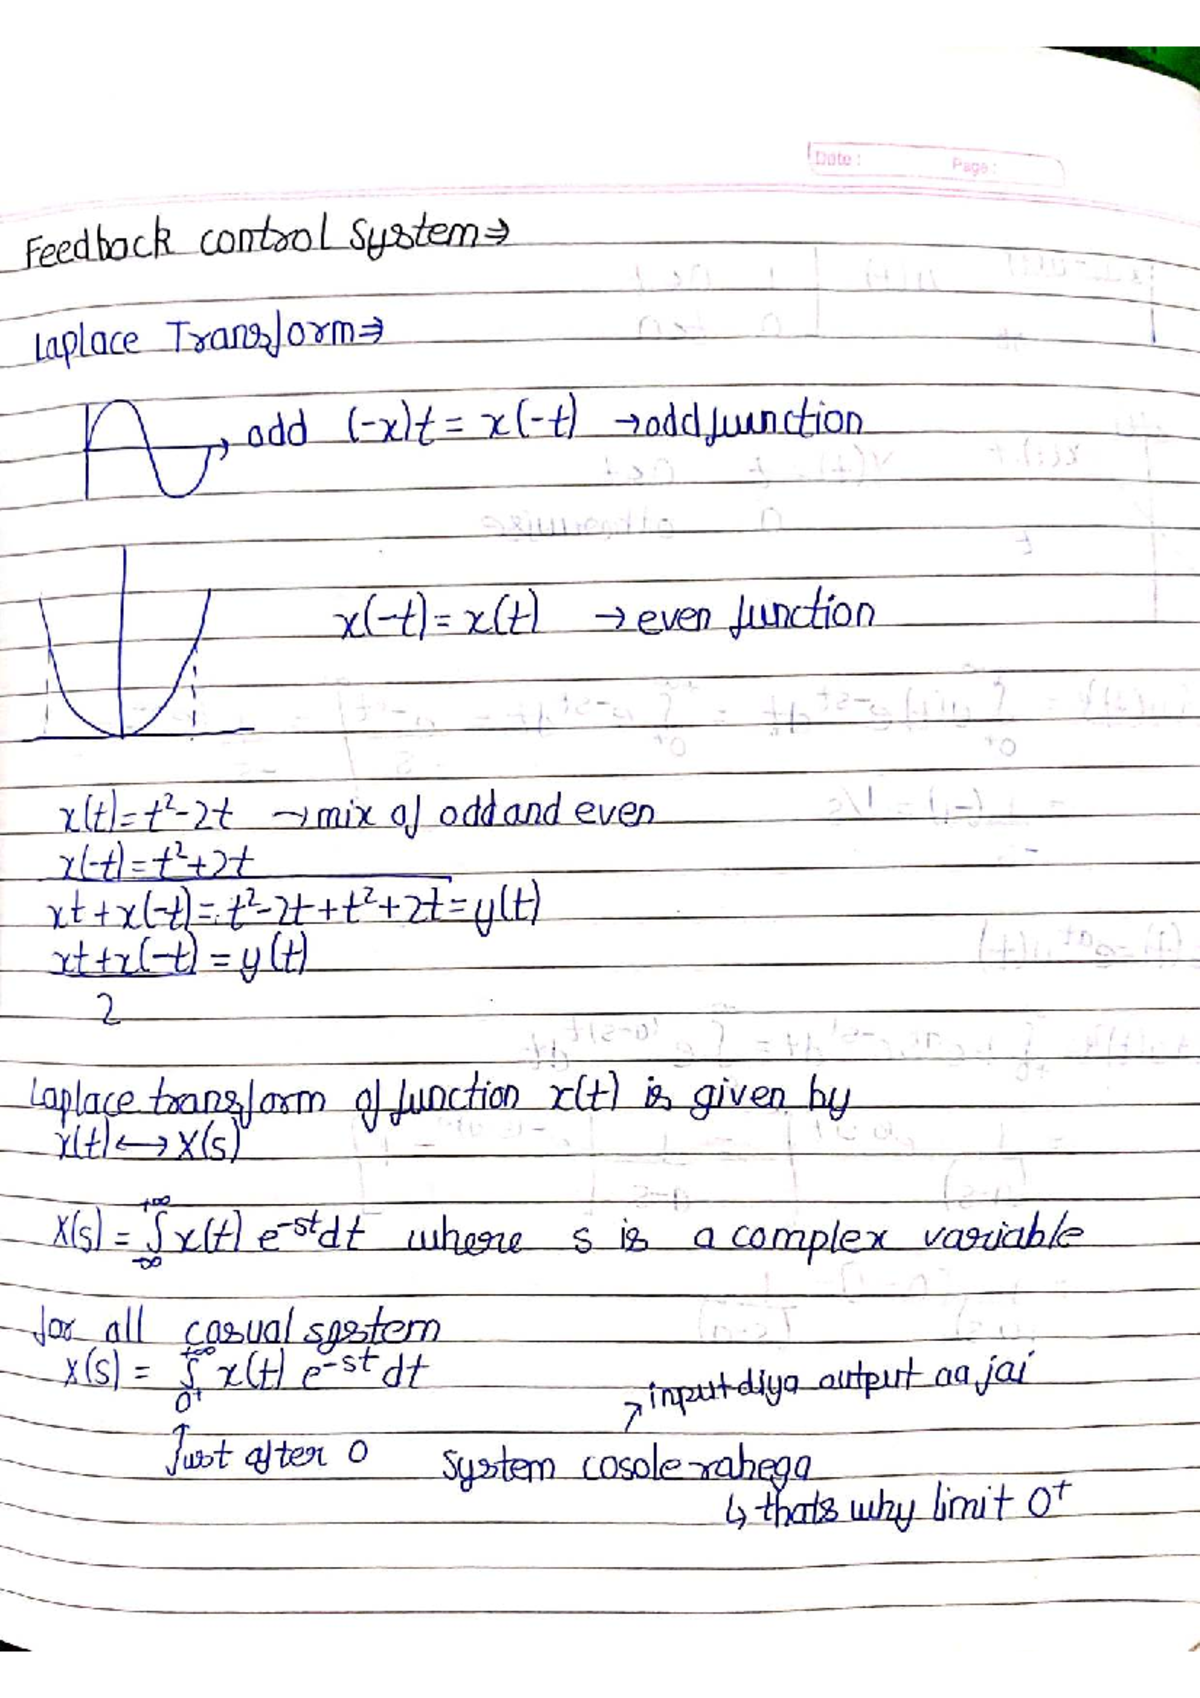 Date :
Page :
Feedback control system⇒
Laplace Transform⇒
odd (-x)t = x(-t) → odd function
x(-t) = x(t) → even function
x(t) = t²-2t → mix of odd and even
x(-t) = t²+2t
xt + x(-t) = t²-2t+t²+2t = y(t)
xt + x(-t) = y(t)
2
Laplace transform of function x(t) is given by
x(t) ↔ X(s)
X(s) = ∫ x(t) e^-st dt where s is a complex variable
+∞
-∞
for all casual system
X(s) = ∫ x(t) e^-st dt
+∞
0⁺
→ input diya output aa jai
↑ Just after 0
system cosole rahega
↳ thats why limit 0⁺